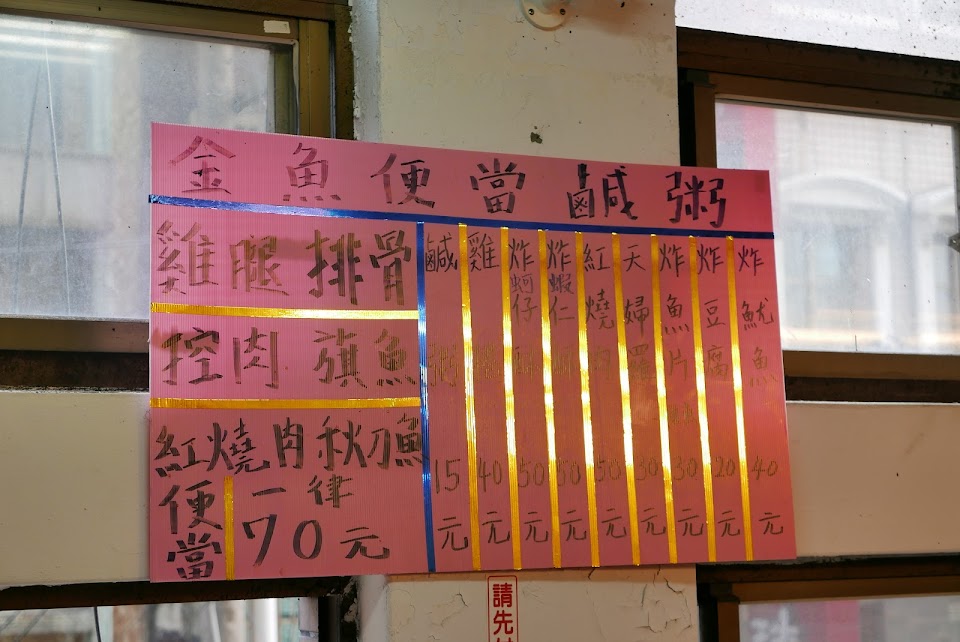 金魚便當鹹粥
雞腿排骨
控肉 旗魚
紅燒肉秋刀魚
便當 一律70元
鹹粥 15元
雞 40元
炸蚵仔 50元
炸蝦仁 50元
紅燒肉 50元
天婦羅 30元
炸魚片 30元
炸豆腐 20元
炸魷魚 40元
請先